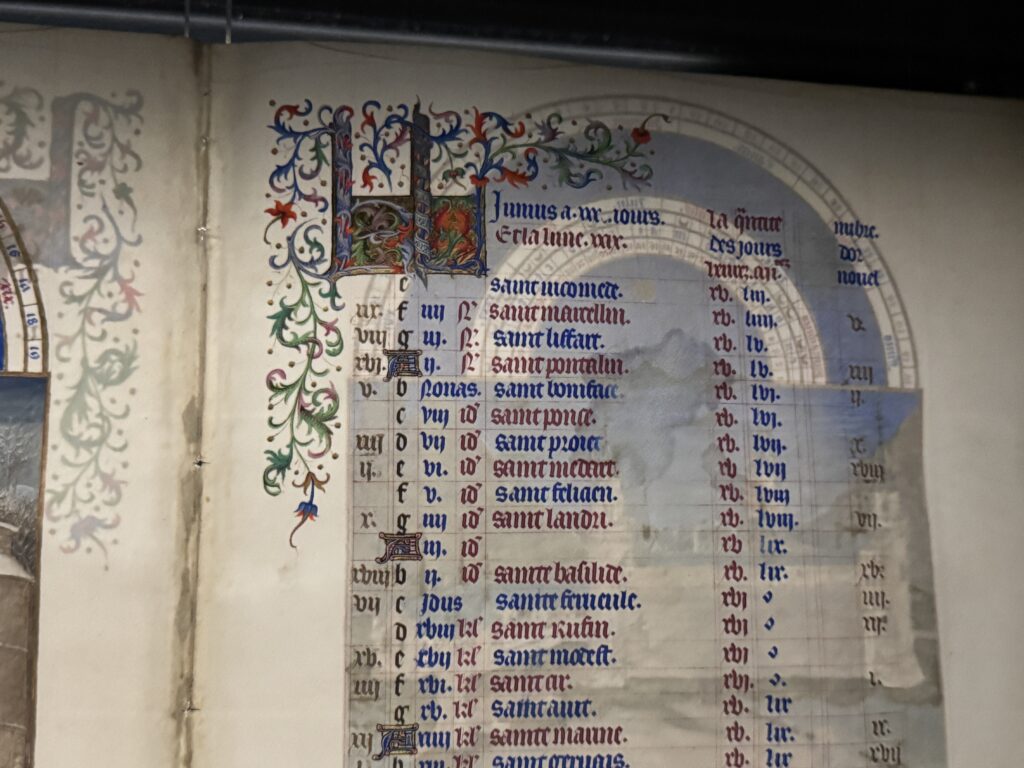 Junius a. xxx. iours. La q̃ntite nũbre.
Et la lune. xxix. des iours dor
nouel
e saint nicomede. xv. liii.
ix. f iiii N̾ saint marcellin. xv. liiii. v.
viii g iii. N̾ saint liffart. xv. lv.
xvi. A ii. N̾ saint pontalin. xv. lv. xiii
v. b Nonas. saint boniface xv. lvi. ii.
c viii id' saint ponce. xv. lvi.
xiii d vii id' saint proiet xv. lvii. x.
ii. e vi. id' saint medart. xv. lvii xviii
f v. id' saint felicien. xv. lviii
x. g iiii id' saint landri. xv. lviii. vii.
A iii. id' xv lix.
xviii b ii. id' sainte basilide. xv. lix. xv.
vii c Idus sainte fenicule. xvi o iiii.
d xviii kl' saint Rufin. xvi o xii.
xv. e xvii kl' saint modest. xvi o
iiii f xvi. kl' saint cir. xvi. o. i.
g xv. kl' saint auit. xv. lix
xii A xiiii kl' sainte marine. xv. lix. ix.
i. b xiii kl' saint geruais. xv. lix xvii
16
18
19